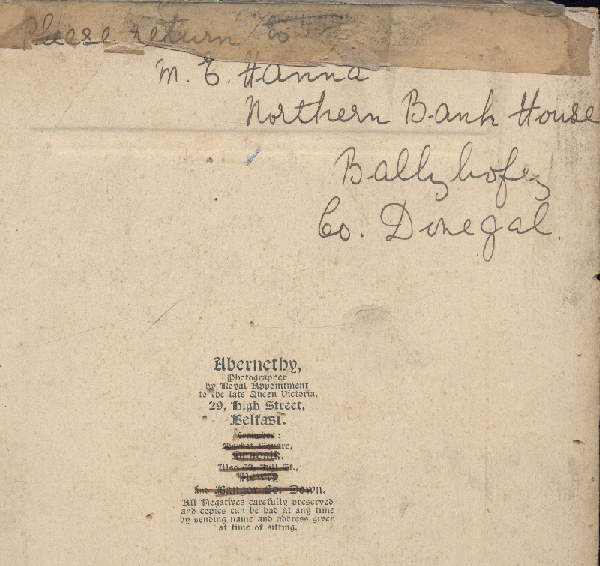 Please return to
M. E. Hanna
Northern Bank House
Ballybofey
Co. Donegal.
Abernethy,
Photographer
by Royal Appointment
to the late Queen Victoria,
29, High Street,
Belfast.
Market Square,
Also 29, Hill St.,
Newry
and Bangor Co. Down.
All Negatives carefully preserved
and copies can be had at any time
by sending name and address given
at time of sitting.